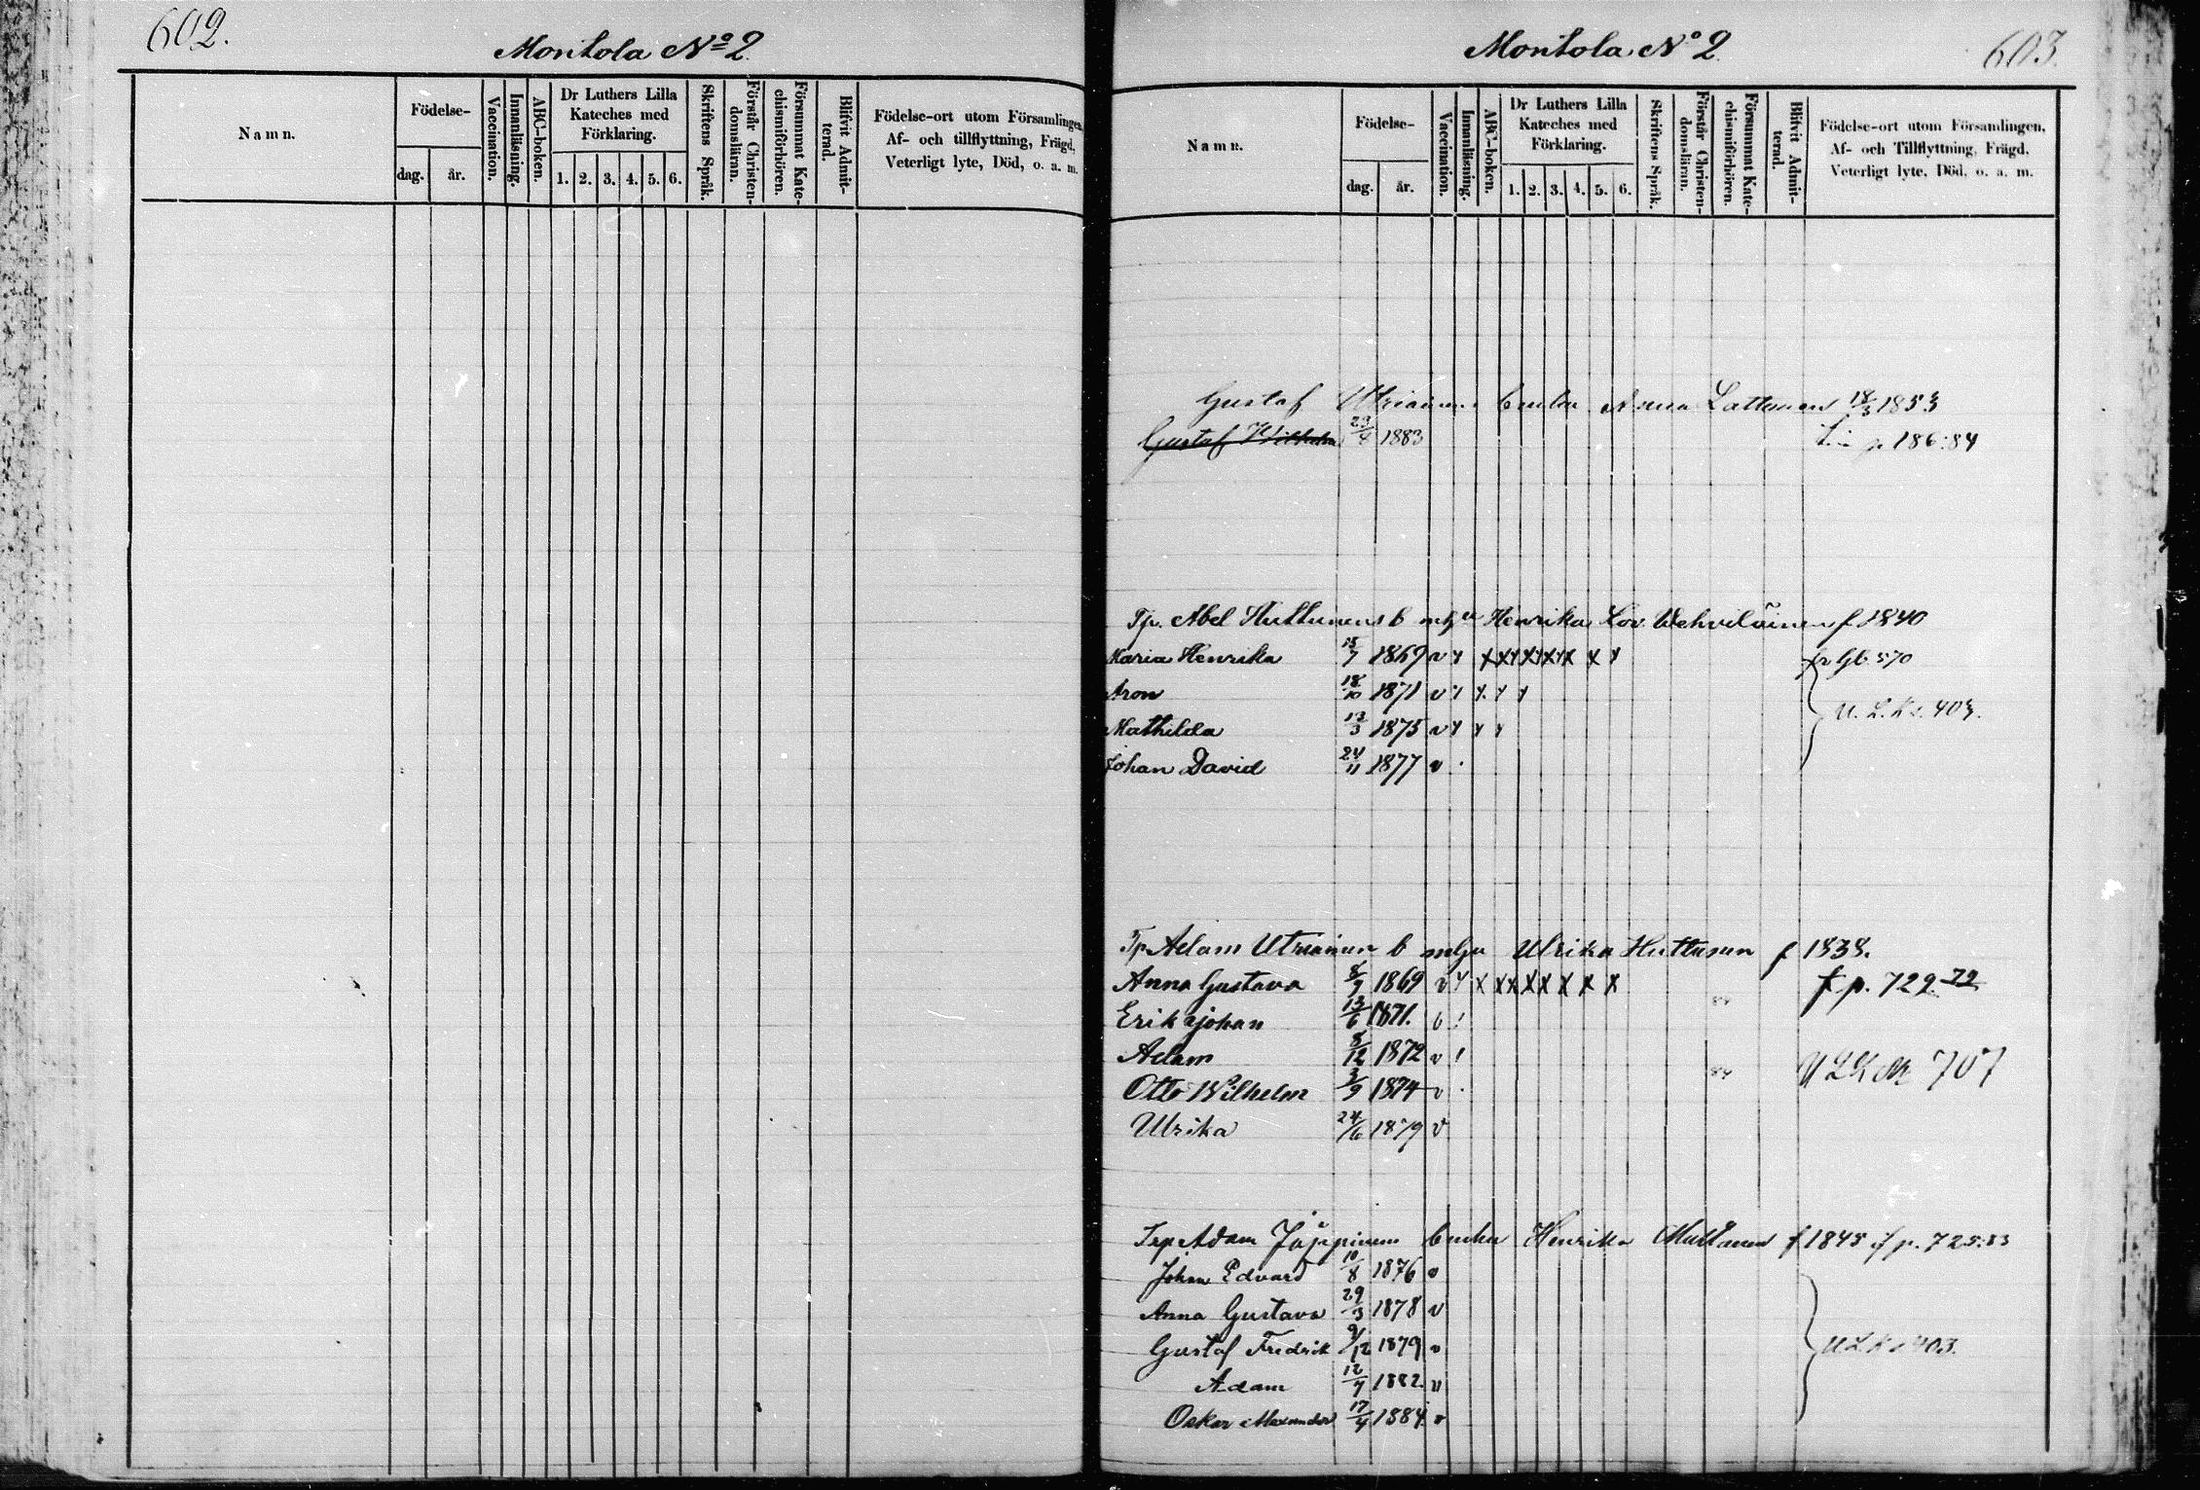 602.
Montola No 2.
Namn.
Födelse-
dag.
år.
Vaccination.
Innanläsning.
ABC-boken.
Dr Luthers Lilla
Kateches med
Förklaring.
1. 2. 3. 4. 5. 6.
Skriftens Språk.
Förstår Christen-
domsläran.
Försummat Kate-
chismiförhören.
Blifvit Admit-
terad.
Födelse-ort utom Församlingen,
Af- och tillflyttning, Frägd,
Veterligt lyte, Död, o. a. m.
Montola No 2
603.
Namn.
Födelse-
dag.
år.
Vaccination.
Innanläsning.
ABC-boken.
Dr Luthers Lilla
Kateches med
Förklaring.
1. 2. 3. 4. 5. 6.
Skriftens Språk.
Förstår Christen-
domsläran.
Försummat Kate-
chismiförhören.
Blifvit Admit-
terad.
Födelse-ort utom Församlingen,
Af- och Tillflyttning, Frägd,
Veterligt lyte, Död, o. a. m.
Gustaf Utriainen Enka Anna Lattunen 18/3 1853
Gustaf Wilhelm 1883 p. 186:84
Tp. Abel Huttunens b m Henrika Lov. Wehviläinen f 1840
Maria Henrika 15/7 1869 v x x x x x x x x 570
Aron 18/10 1871 v
Mathilda 13/3 1875 v
U. L. K. s. 403.
Johan David 24/11 1877 v
Tp Adam Utriainen b m Ulrika Huttunen f 1838.
Anna Gustava 8/7 1869 v x x x x x x x x p. 729
Erik Johan 13/6 1871.
Adam 8/12 1872 v
U L K 707
Otto Wilhelm 3/9 1874 v
Ulrika 24/6 1879 v
Adam Jäppinen Enka Henrika f 1845 p. 725:83
Johan Edvard 10/8 1876 v
Anna Gustava 29/3 1878 v
Gustaf Fredrik 9/12 1879 v
U L K s 403.
Adam 12/7 1882 v
Oskar Alexander 17/4 1884 v